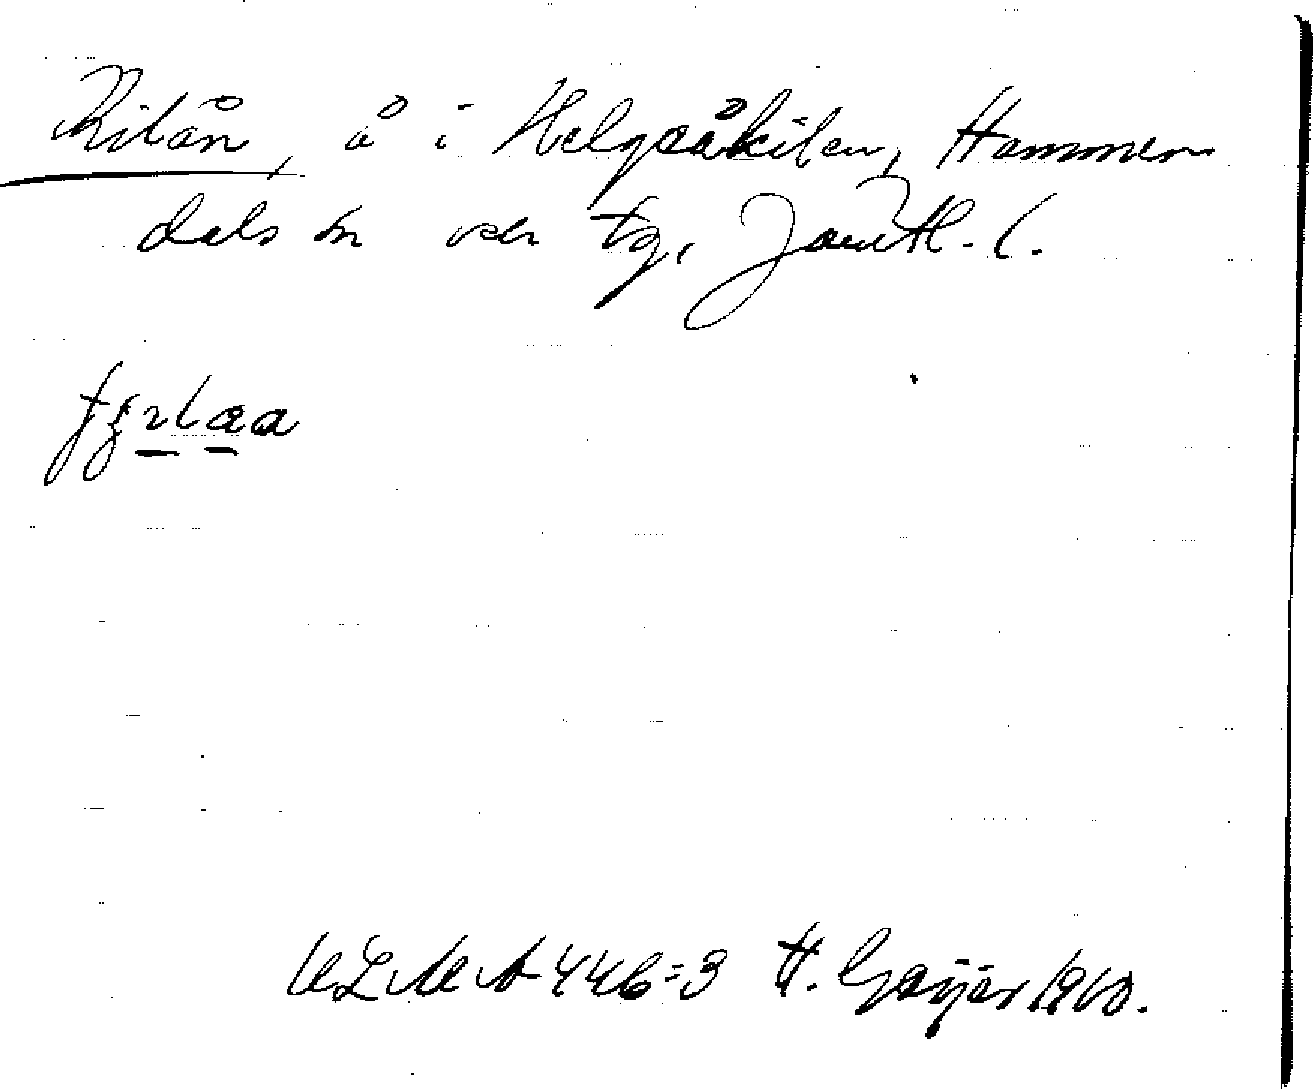 Kilån, å i Helgeåkilen, Hammer
dals sn och tg, Jämtl. l.
ULMA 446:3 H. Geijer 1910.